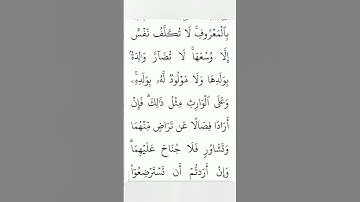 بِالْمَعْرُوفِ ۚ لَا تُكَلَّفُ نَفْسٌ
إِلَّا وُسْعَهَا ۚ لَا تُضَارَّ وَالِدَةٌ
بِوَلَدِهَا وَلَا مَوْلُودٌ لَّهُۥ بِوَلَدِهِۦ ۚ
وَعَلَى ٱلْوَارِثِ مِثْلُ ذَٰلِكَ ۗ فَإِنْ
أَرَادَا فِصَالًا عَن تَرَاضٍ مِّنْهُمَا
وَتَشَاوُرٍ فَلَا جُنَاحَ عَلَيْهِمَا ۗ
وَإِنْ أَرَدتُّمْ أَن تَسْتَرْضِعُوٓا۟